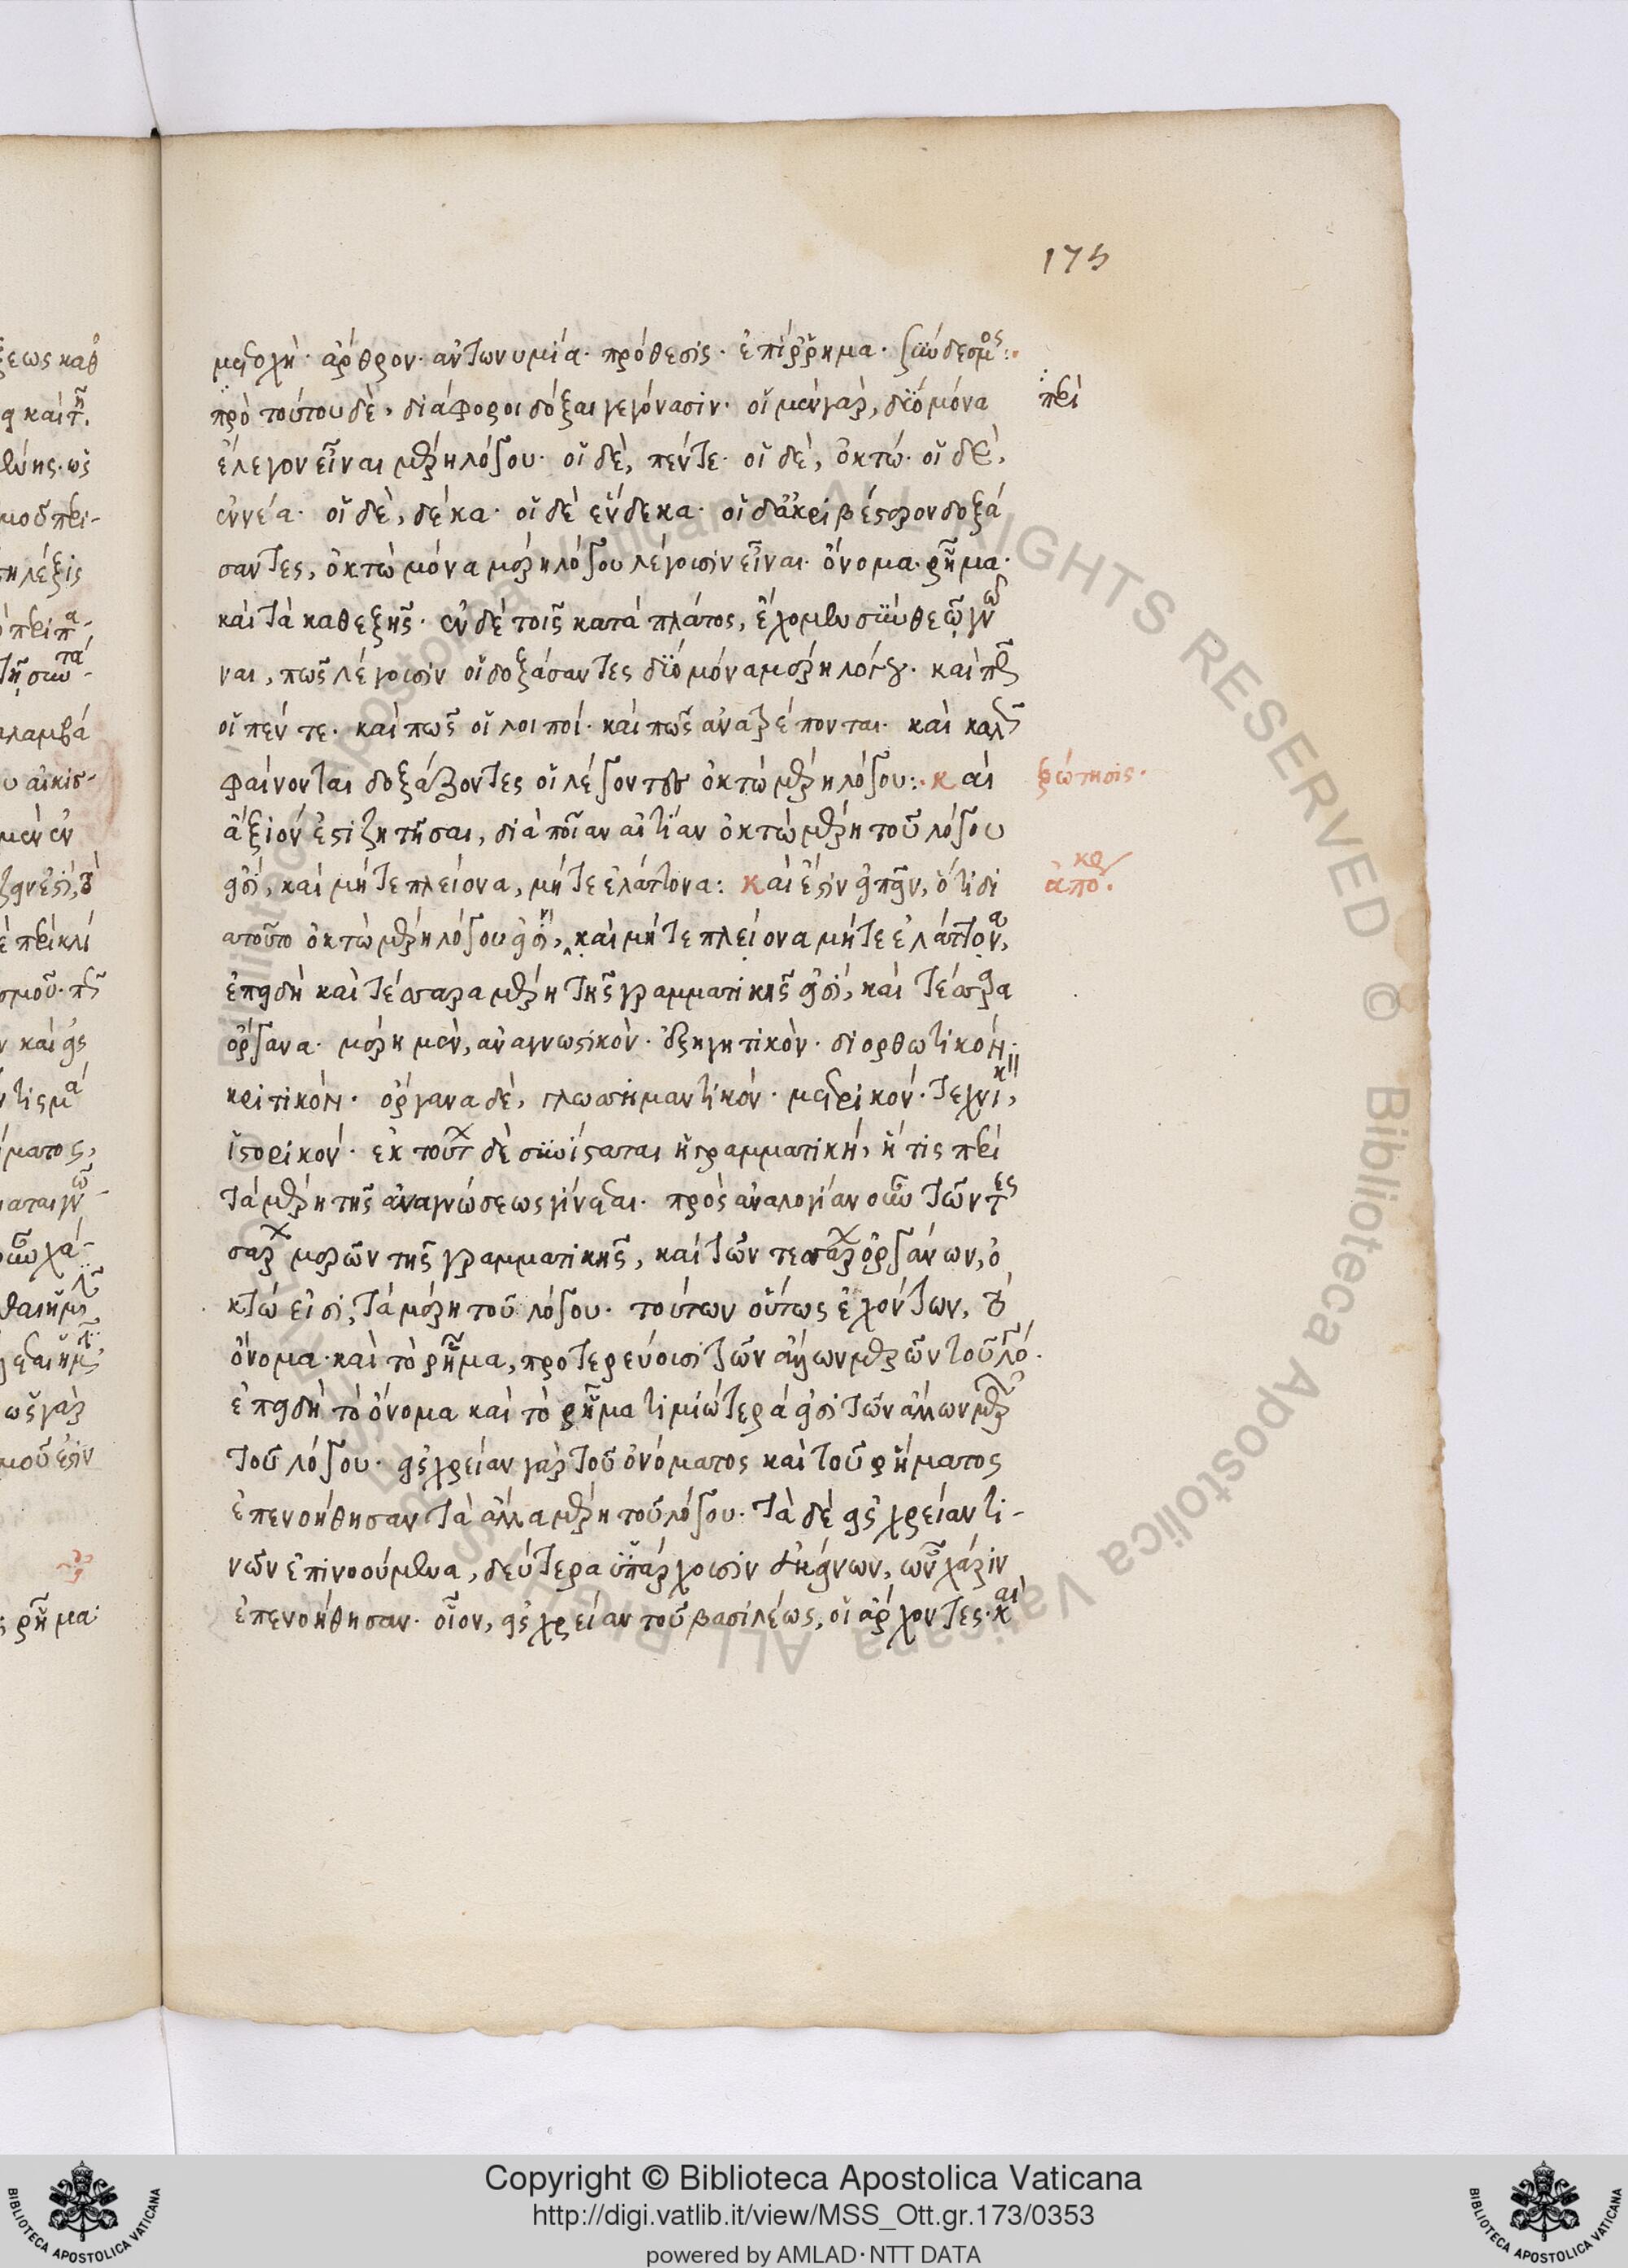 175
μετοχὴ· ἄρθρον· ἀντωνυμία· πρόθεσις· ἐπίρρημα· σύνδεσμος:
πρὸ τούτου δὲ, διάφοροι δόξαι γεγόνασιν· οἱ μὲν γὰρ, δύο μόνα
περὶ
ἔλεγον εἶναι μέρη λόγου· οἱ δὲ, πέντε· οἱ δὲ, ὀκτώ· οἱ δὲ,
ἐννέα· οἱ δὲ, δέκα· οἱ δὲ ἕνδεκα· οἱ δ' ἀκριβέστερον δοξά
σαντες, ὀκτὼ μόνα μέρη λόγου λέγουσιν εἶναι· ὄνομα· ῥῆμα·
καὶ τὰ καθεξῆς· ἐν δὲ τοῖς κατὰ πλάτος, ἔχομεν σὺν θεῷ γνῶ
ναι, πῶς λέγουσιν οἱ δοξάσαντες δύο μόνα μέρη λόγου· καὶ πῶς
οἱ πέντε· καὶ πῶς οἱ λοιποί· καὶ πῶς ἀνατρέπονται· καὶ καλῶς
φαίνονται δοξάζοντες οἱ λέγοντες ὀκτὼ μέρη λόγου:· καὶ
ἐρώτησις·
ἄξιόν ἐστι ζητῆσαι, διὰ ποίαν αἰτίαν ὀκτὼ μέρη τοῦ λόγου
εἰσί, καὶ μήτε πλείονα, μήτε ἐλάττονα: καὶ ἔστιν εἰπεῖν, ὅτι δι
ἀπόκρ
ατοῦτο ὀκτὼ μέρη λόγου εἰσὶν, καὶ μήτε πλείονα μήτε ἐλάττονα,
ἐπειδὴ καὶ τέσσαρα μέρη τῆς γραμματικῆς εἰσί, καὶ τέσσαρα
ὄργανα· μέρη μὲν, ἀναγνωστικὸν· ἐξηγητικὸν· διορθωτικόν·
κριτικόν· ὄργανα δὲ, γλωσσηματικόν· μετρικόν· τεχνικὸν,
ἱστορικόν· ἐκ τούτων δὲ συνίσταται ἡ γραμματική, ἥτις περὶ
τὰ μέρη τῆς ἀναγνώσεως γίνεται· πρὸς ἀναλογίαν οὖν τῶν τεσ
σάρων μερῶν τῆς γραμματικῆς, καὶ τῶν τεσσάρων ὀργάνων, ὀ
κτώ εἰσι, τὰ μέρη τοῦ λόγου· τούτων οὕτως ἐχόντων, τὸ
ὄνομα· καὶ τὸ ῥῆμα, προτερεύουσι τῶν ἄλλων μερῶν τοῦ λό·
ἐπειδὴ τὸ ὄνομα καὶ τὸ ῥῆμα τιμιώτερά εἰσι τῶν ἄλλων μερῶν
τοῦ λόγου· εἰς χρείαν γὰρ τοῦ ὀνόματος καὶ τοῦ ῥήματος
ἐπενοήθησαν τὰ ἄλλα μέρη τοῦ λόγου· τὰ δὲ εἰς χρείαν τι-
νῶν ἐπινοούμενα, δεύτερα ὑπάρχουσιν ἐκείνων, ὧν χάριν
ἐπενοήθησαν· οἷον, εἰς χρείαν τοῦ βασιλέως, οἱ ἄρχοντες· καὶ
Copyright © Biblioteca Apostolica Vaticana
http://digi.vatlib.it/view/MSS_Ott.gr.173/0353
powered by AMLAD·NTT DATA